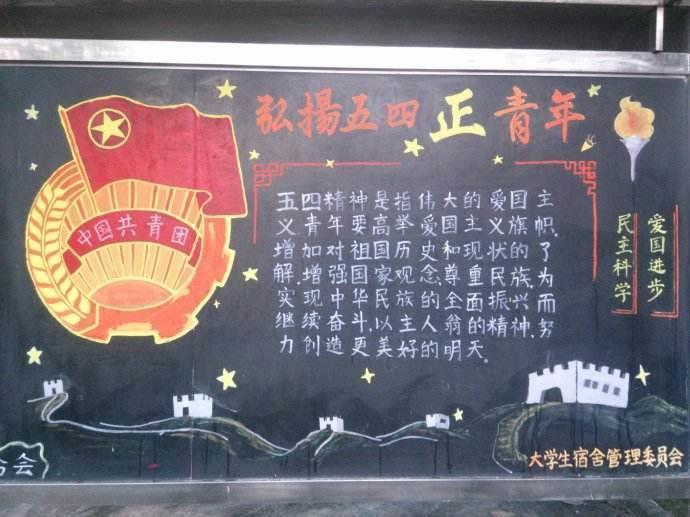 弘揚五四正青年
中国共青团
五四精神是指伟大的爱国主
义青年要高举爱国主义旗帜.
增加对祖国历史和现状的了
解.增强国家观念.尊重民族.为
实现中华民族的全面振兴而
继续奋斗.以主人翁的精神.努
力创造更美好的明天。
爱国进步
民主科学
会
大学生宿舍管理委员会